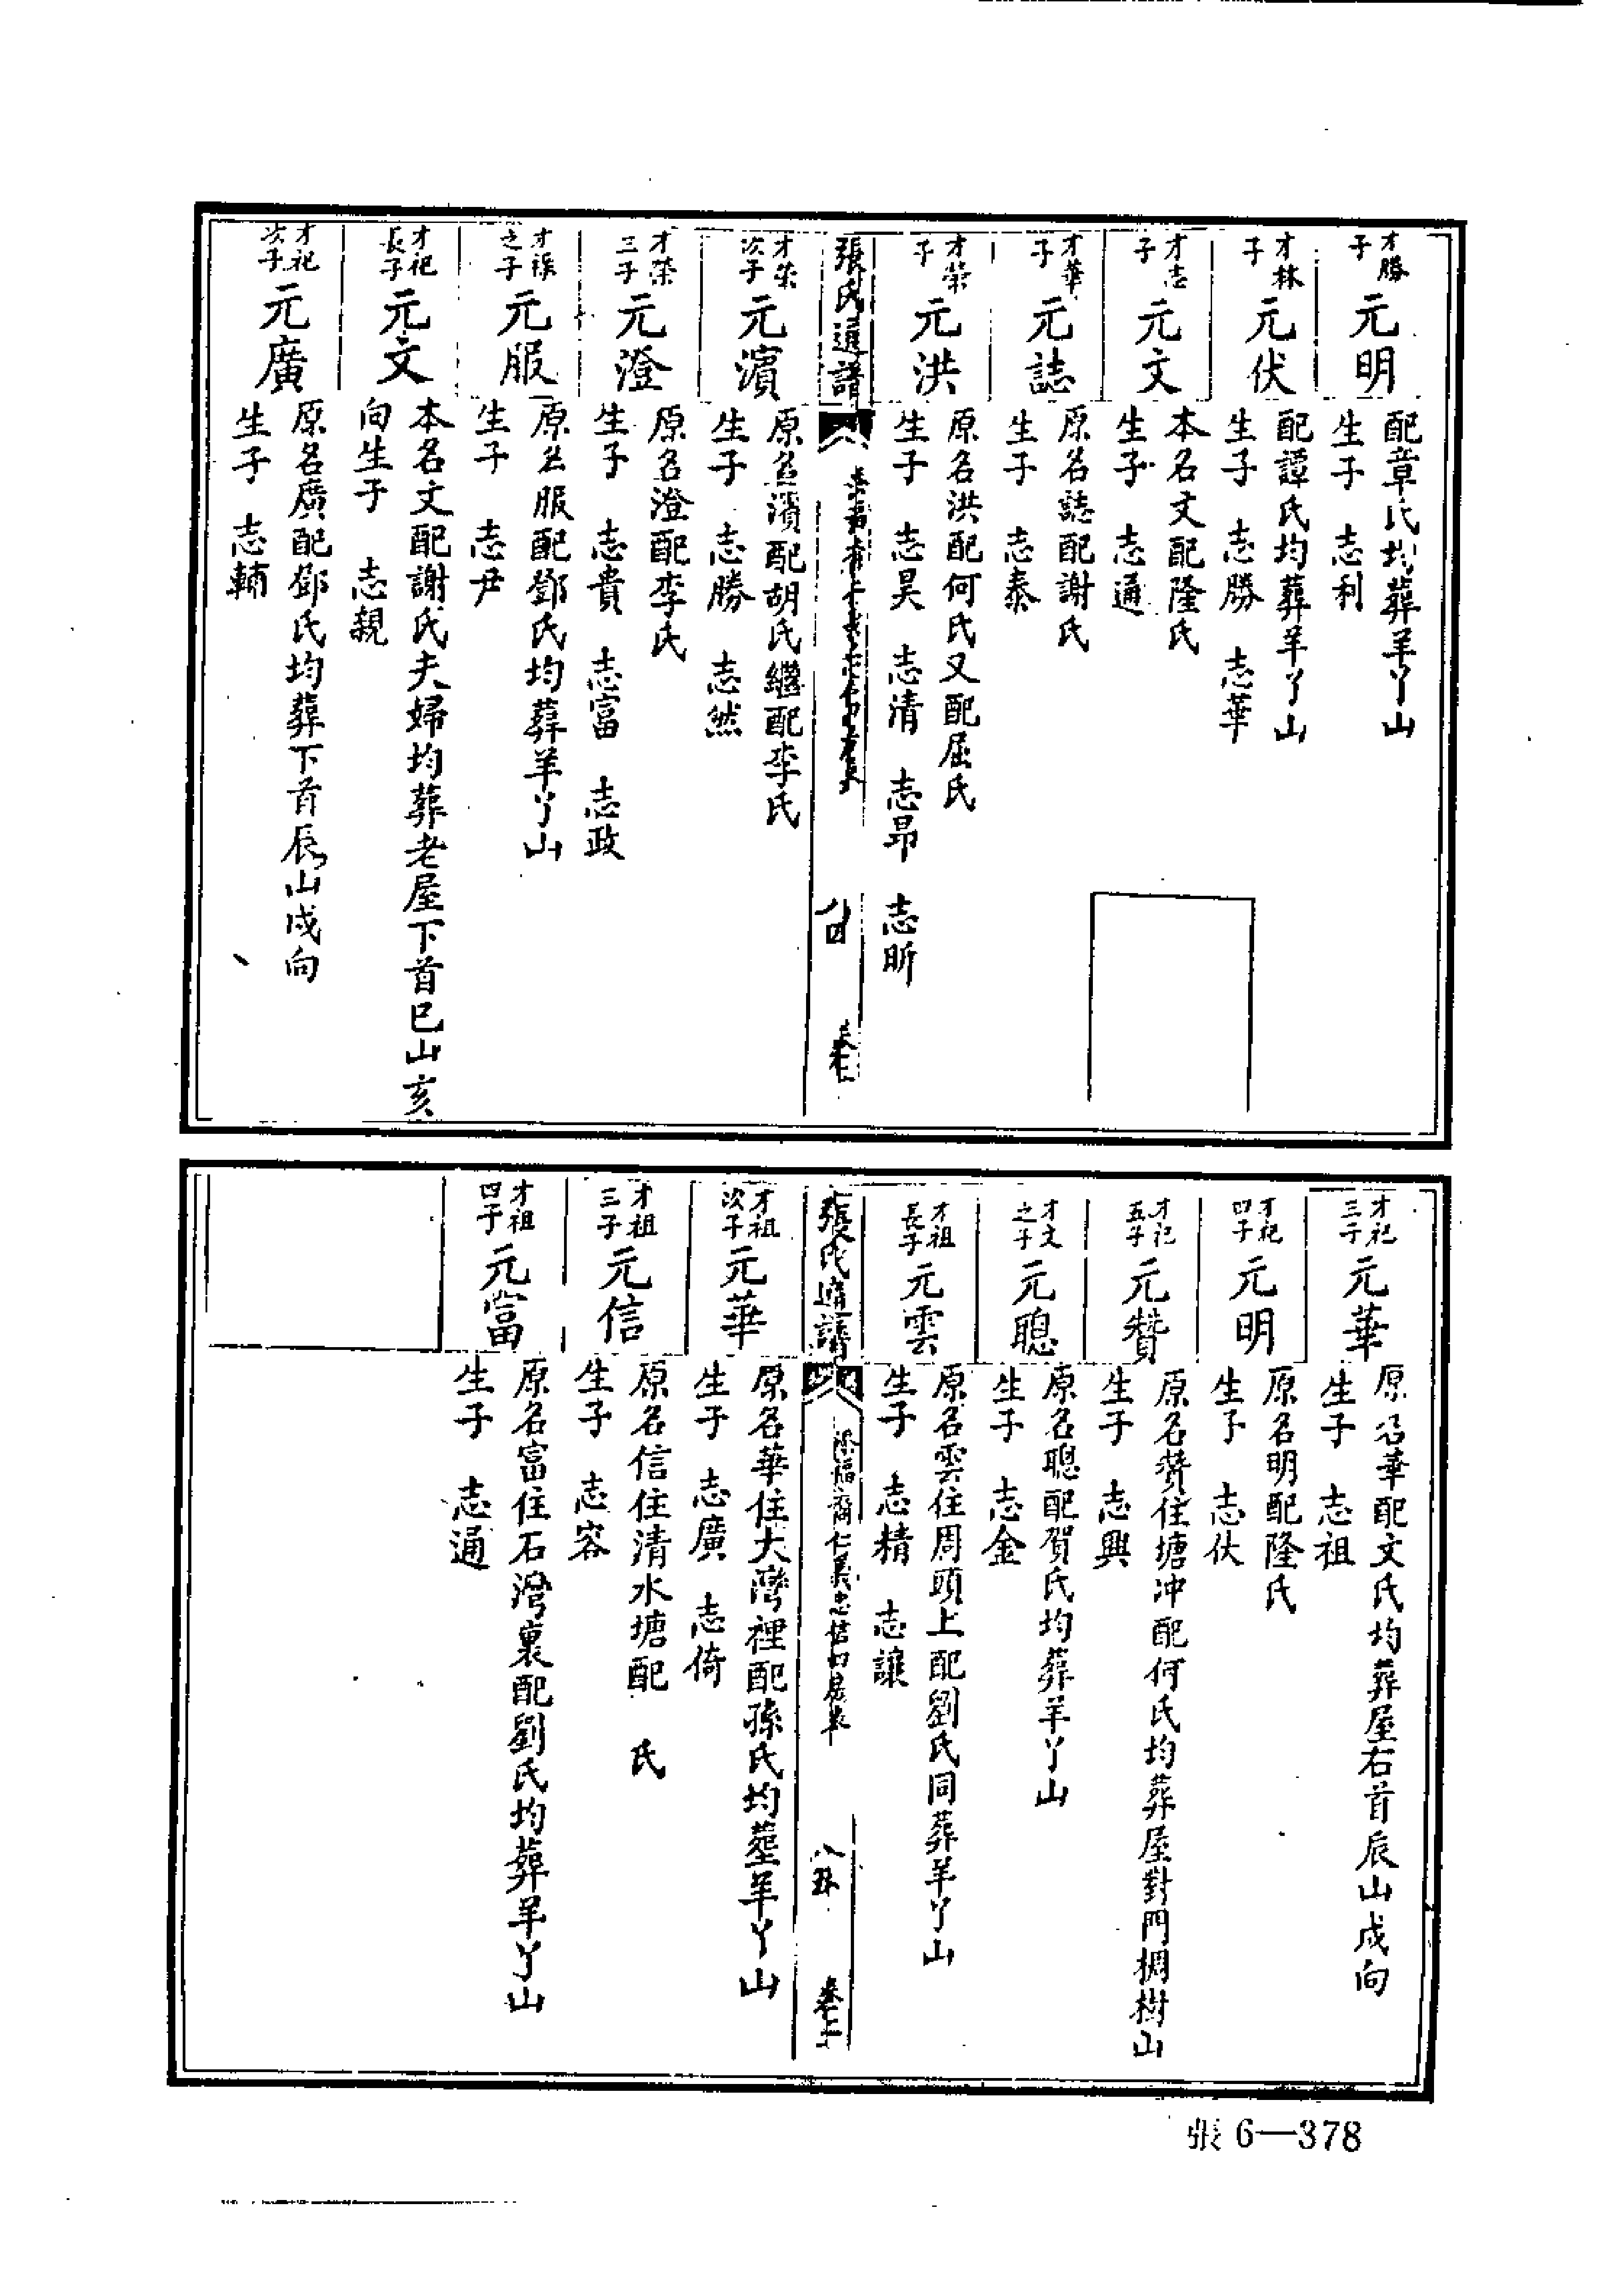 才勝
子
元明
配章氏均葬羊丫山
生子　志利
才林
子
元伏
配譚氏均葬羊丫山
生子　志勝　志華
才志
子
元文
本名文配隆氏
生子　志通
才華
子
元誌
原名誌配謝氏
生子　志泰
才榮
子
元洪
原名洪配何氏又配屈氏
生子　志昊　志清　志昂　志昕
張氏通譜
八四
才榮
次子
元濱
原名濱配胡氏繼配李氏
生子　志勝　志然
才榮
三子
元澄
原名澄配李氏
生子　志貴　志富　志政
之子
元服
原名服配鄧氏均葬羊丫山
生子　志尹
才祀
長子
元文
本名文配謝氏夫婦均葬老屋下首巳山亥
向生子　志親
才祀
次子
元廣
原名廣配鄧氏均葬下首辰山戌向
生子　志輔
才祀
三子
元華
原名華配文氏均葬屋右首辰山戌向
生子　志祖
才祀
四子
元明
原名明配隆氏
生子　志伏
才祀
五子
元贊
原名贊住塘冲配何氏均葬屋對門椆樹山
生子　志興
才文
之子
元聰
原名聰配賀氏均葬羊丫山
生子　志金
才祖
長子
元雲
原名雲住周頭上配劉氏同葬羊丫山
生子　志精　志讓
張氏通譜
添福裔仁義忠信四房表
八五
卷十二
才祖
次子
元華
原名華住大灣裡配孫氏均塟羊丫山
生子　志廣　志倚
才祖
三子
元信
原名信住清水塘配　氏
生子　志容
才祖
四子
元當
原名富住石灣裏配劉氏均葬羊丫山
生子　志通
張 6—378